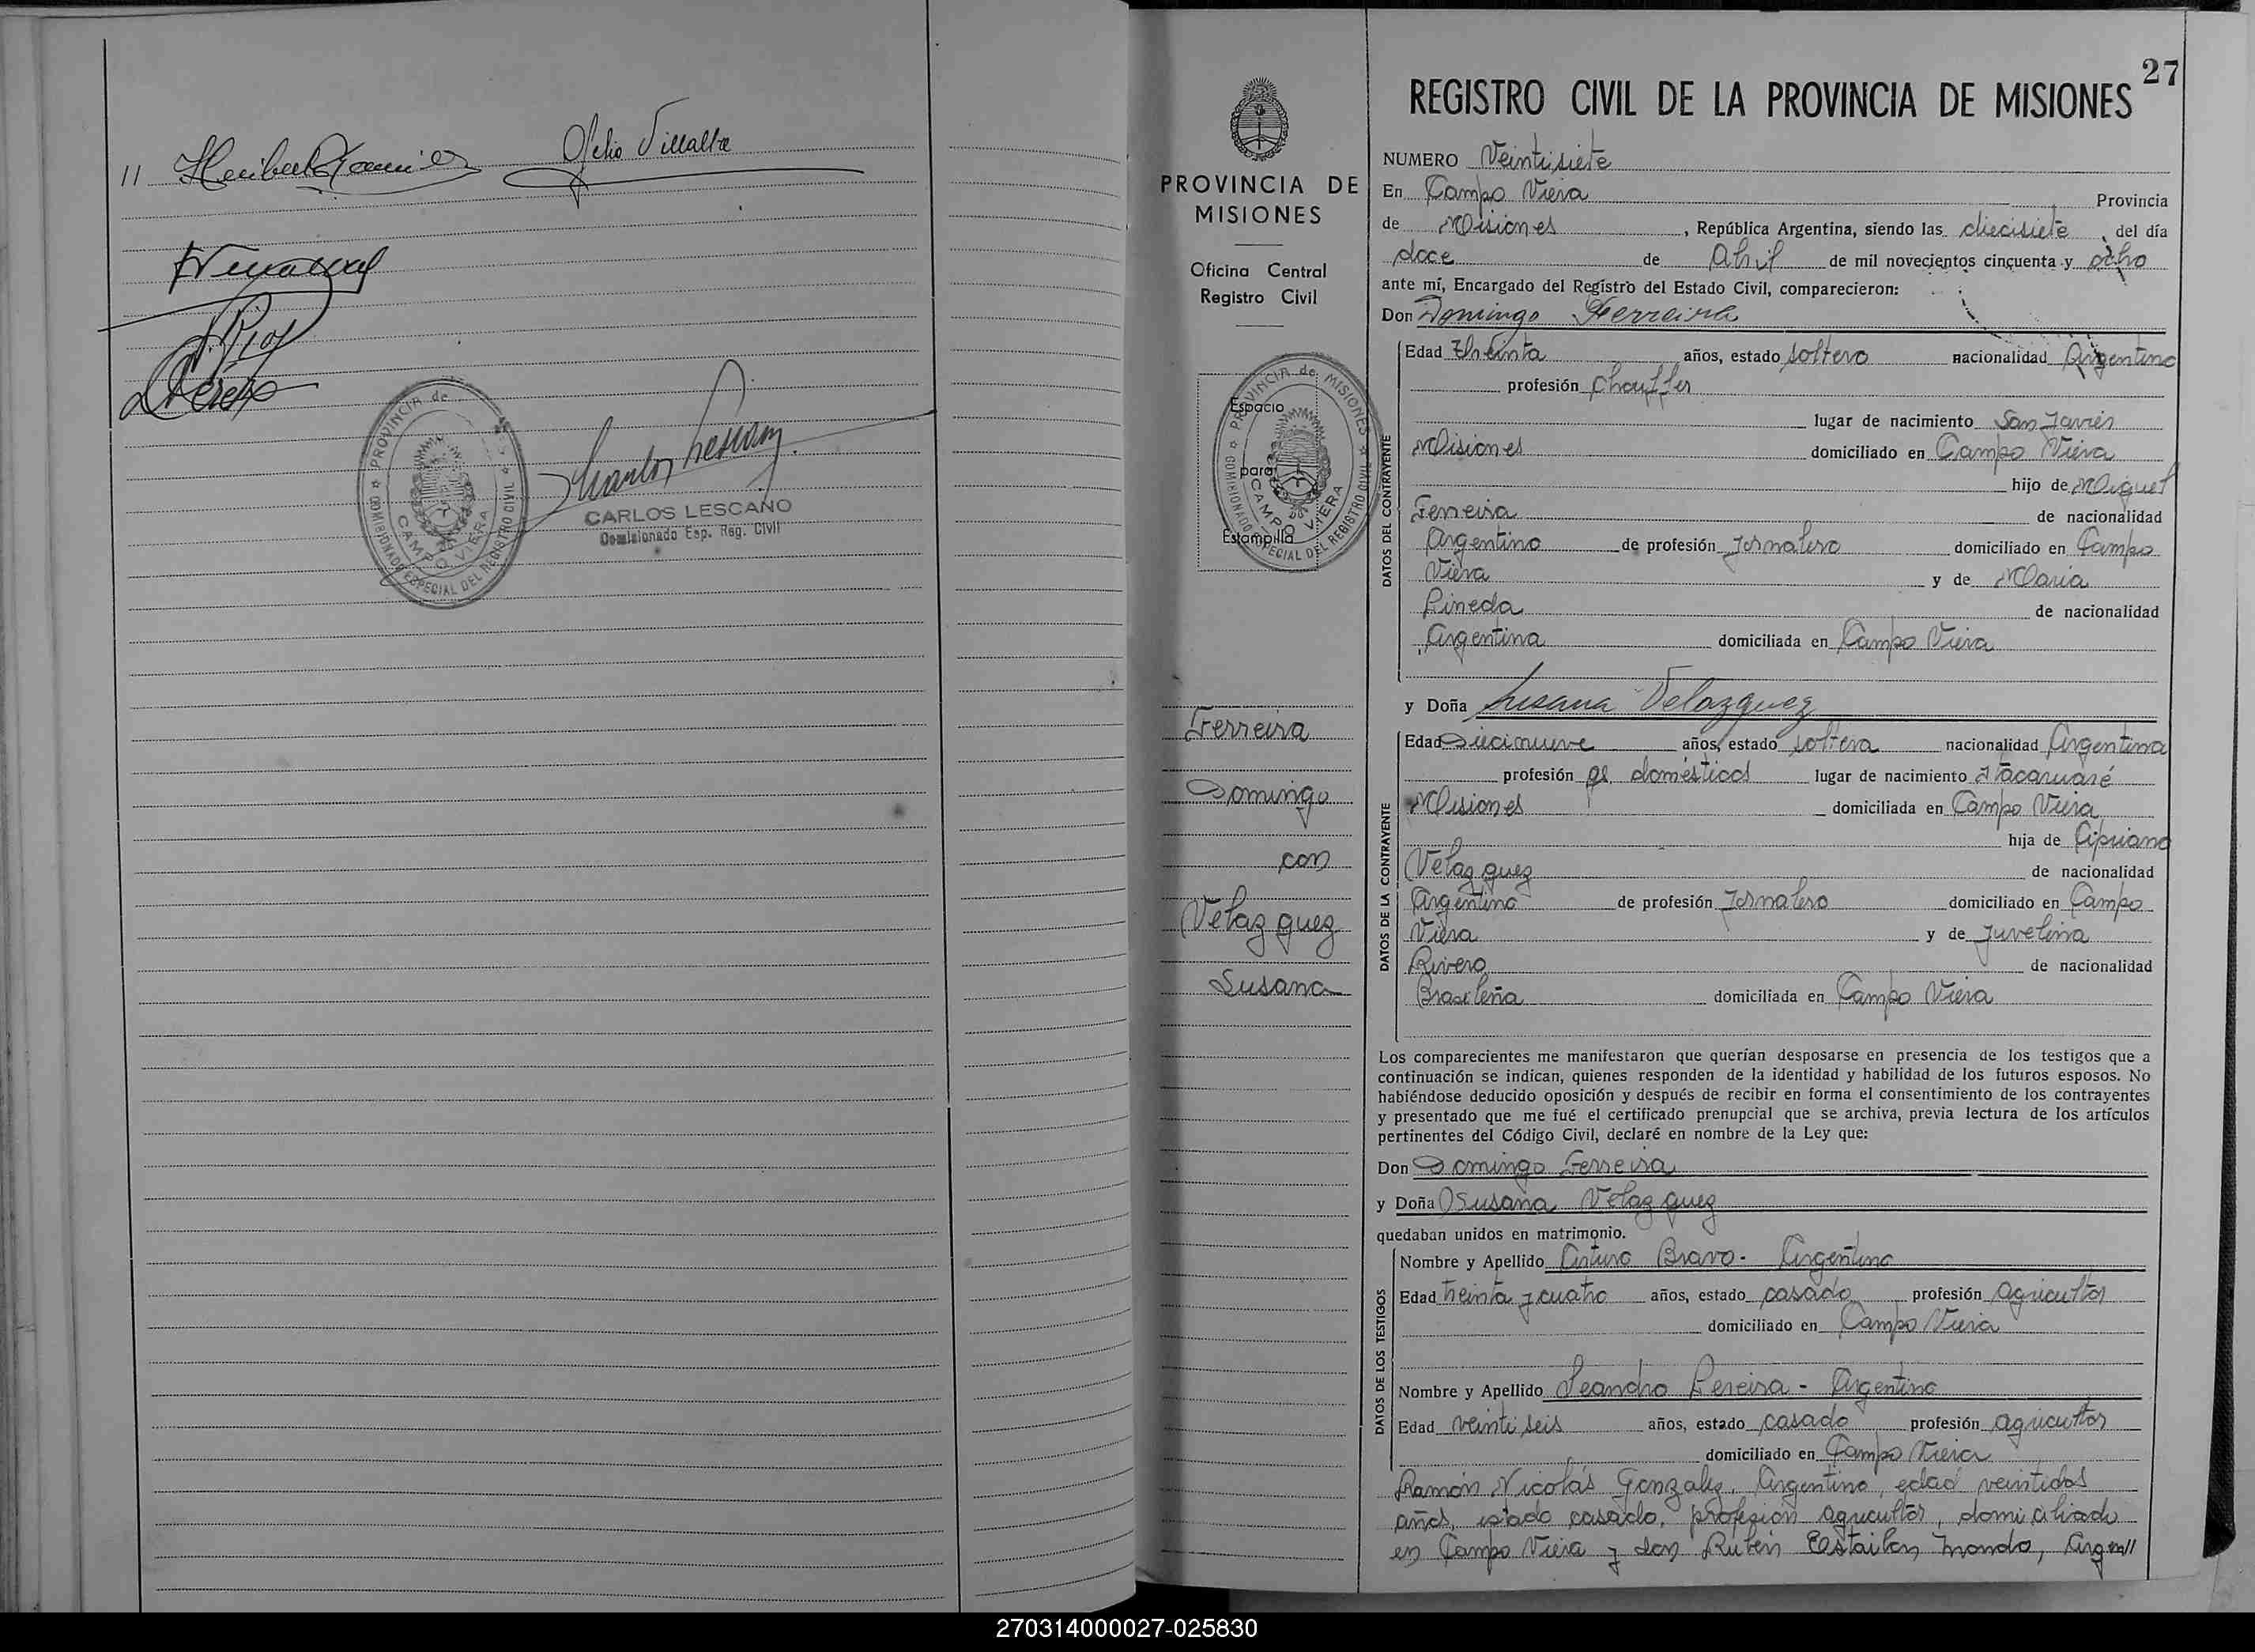 11 Ofelio Villalba
PROVINCIA de
COMISIONADO ESPECIAL DEL REGISTRO CIVIL
CAMPO VIERA
CARLOS LESCANO
Comisionado Esp. Reg. Civil
PROVINCIA DE
MISIONES
Oficina Central
Registro Civil
PROVINCIA de MISIONES
COMISIONADO ESPECIAL DEL REGISTRO CIVIL
CAMPO VIERA
Espacio
para
Estampilla
Ferreira
Domingo
con
Velazquez
Susana
27
REGISTRO CIVIL DE LA PROVINCIA DE MISIONES
NUMERO Veintisiete
En Campo Viera Provincia
de Misiones, República Argentina, siendo las diecisiete, del día
doce de Abril de mil novecientos cincuenta y ocho
ante mí, Encargado del Registro del Estado Civil, comparecieron:
Don Domingo Ferreira
DATOS DEL CONTRAYENTE
Edad treinta años, estado soltero nacionalidad Argentino
profesión Chouffer
lugar de nacimiento San Javier
Misiones domiciliado en Campo Viera
hijo de Miguel
Ferreira de nacionalidad
Argentino de profesión Jornalero domiciliado en Campo
Viera y de Maria
Pineda de nacionalidad
Argentina domiciliada en Campo Viera
y Doña Susana Velazquez
DATOS DE LA CONTRAYENTE
Edad Diecinueve años, estado soltera nacionalidad Argentina
profesión q. domésticos lugar de nacimiento Itacaruaré
Misiones domiciliada en Campo Viera
hija de Cipriano
Velazquez de nacionalidad
Argentino de profesión Jornalero domiciliado en Campo
Viera y de Juvelina
Rivero de nacionalidad
Brasileña domiciliada en Campo Viera
Los comparecientes me manifestaron que querían desposarse en presencia de los testigos que a
continuación se indican, quienes responden de la identidad y habilidad de los futuros esposos. No
habiéndose deducido oposición y después de recibir en forma el consentimiento de los contrayentes
y presentado que me fué el certificado prenupcial que se archiva, previa lectura de los artículos
pertinentes del Código Civil, declaré en nombre de la Ley que:
Don Domingo Ferreira
y Doña Susana Velazquez
quedaban unidos en matrimonio.
DATOS DE LOS TESTIGOS
Nombre y Apellido Arturo Bravo - Argentino
Edad treinta y cuatro años, estado casado profesión agricultor
domiciliado en Campo Viera
Nombre y Apellido Leandro Pereira - Argentino
Edad veintiseis años, estado casado profesión agricultor
domiciliado en Campo Viera
Ramón Nicolás Gonzalez, Argentino, edad veintidos
años, estado casado, profesion agricultor, domiciliado
en Campo Viera y don Rubén, Argen//
270314000027-025830